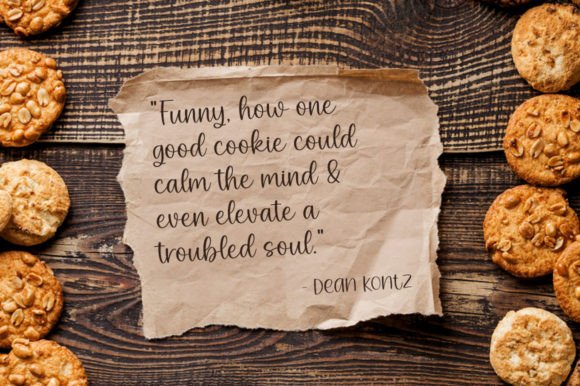 "Funny, how one
good cookie could
calm the mind &
even elevate a
troubled soul."
- Dean Kontz